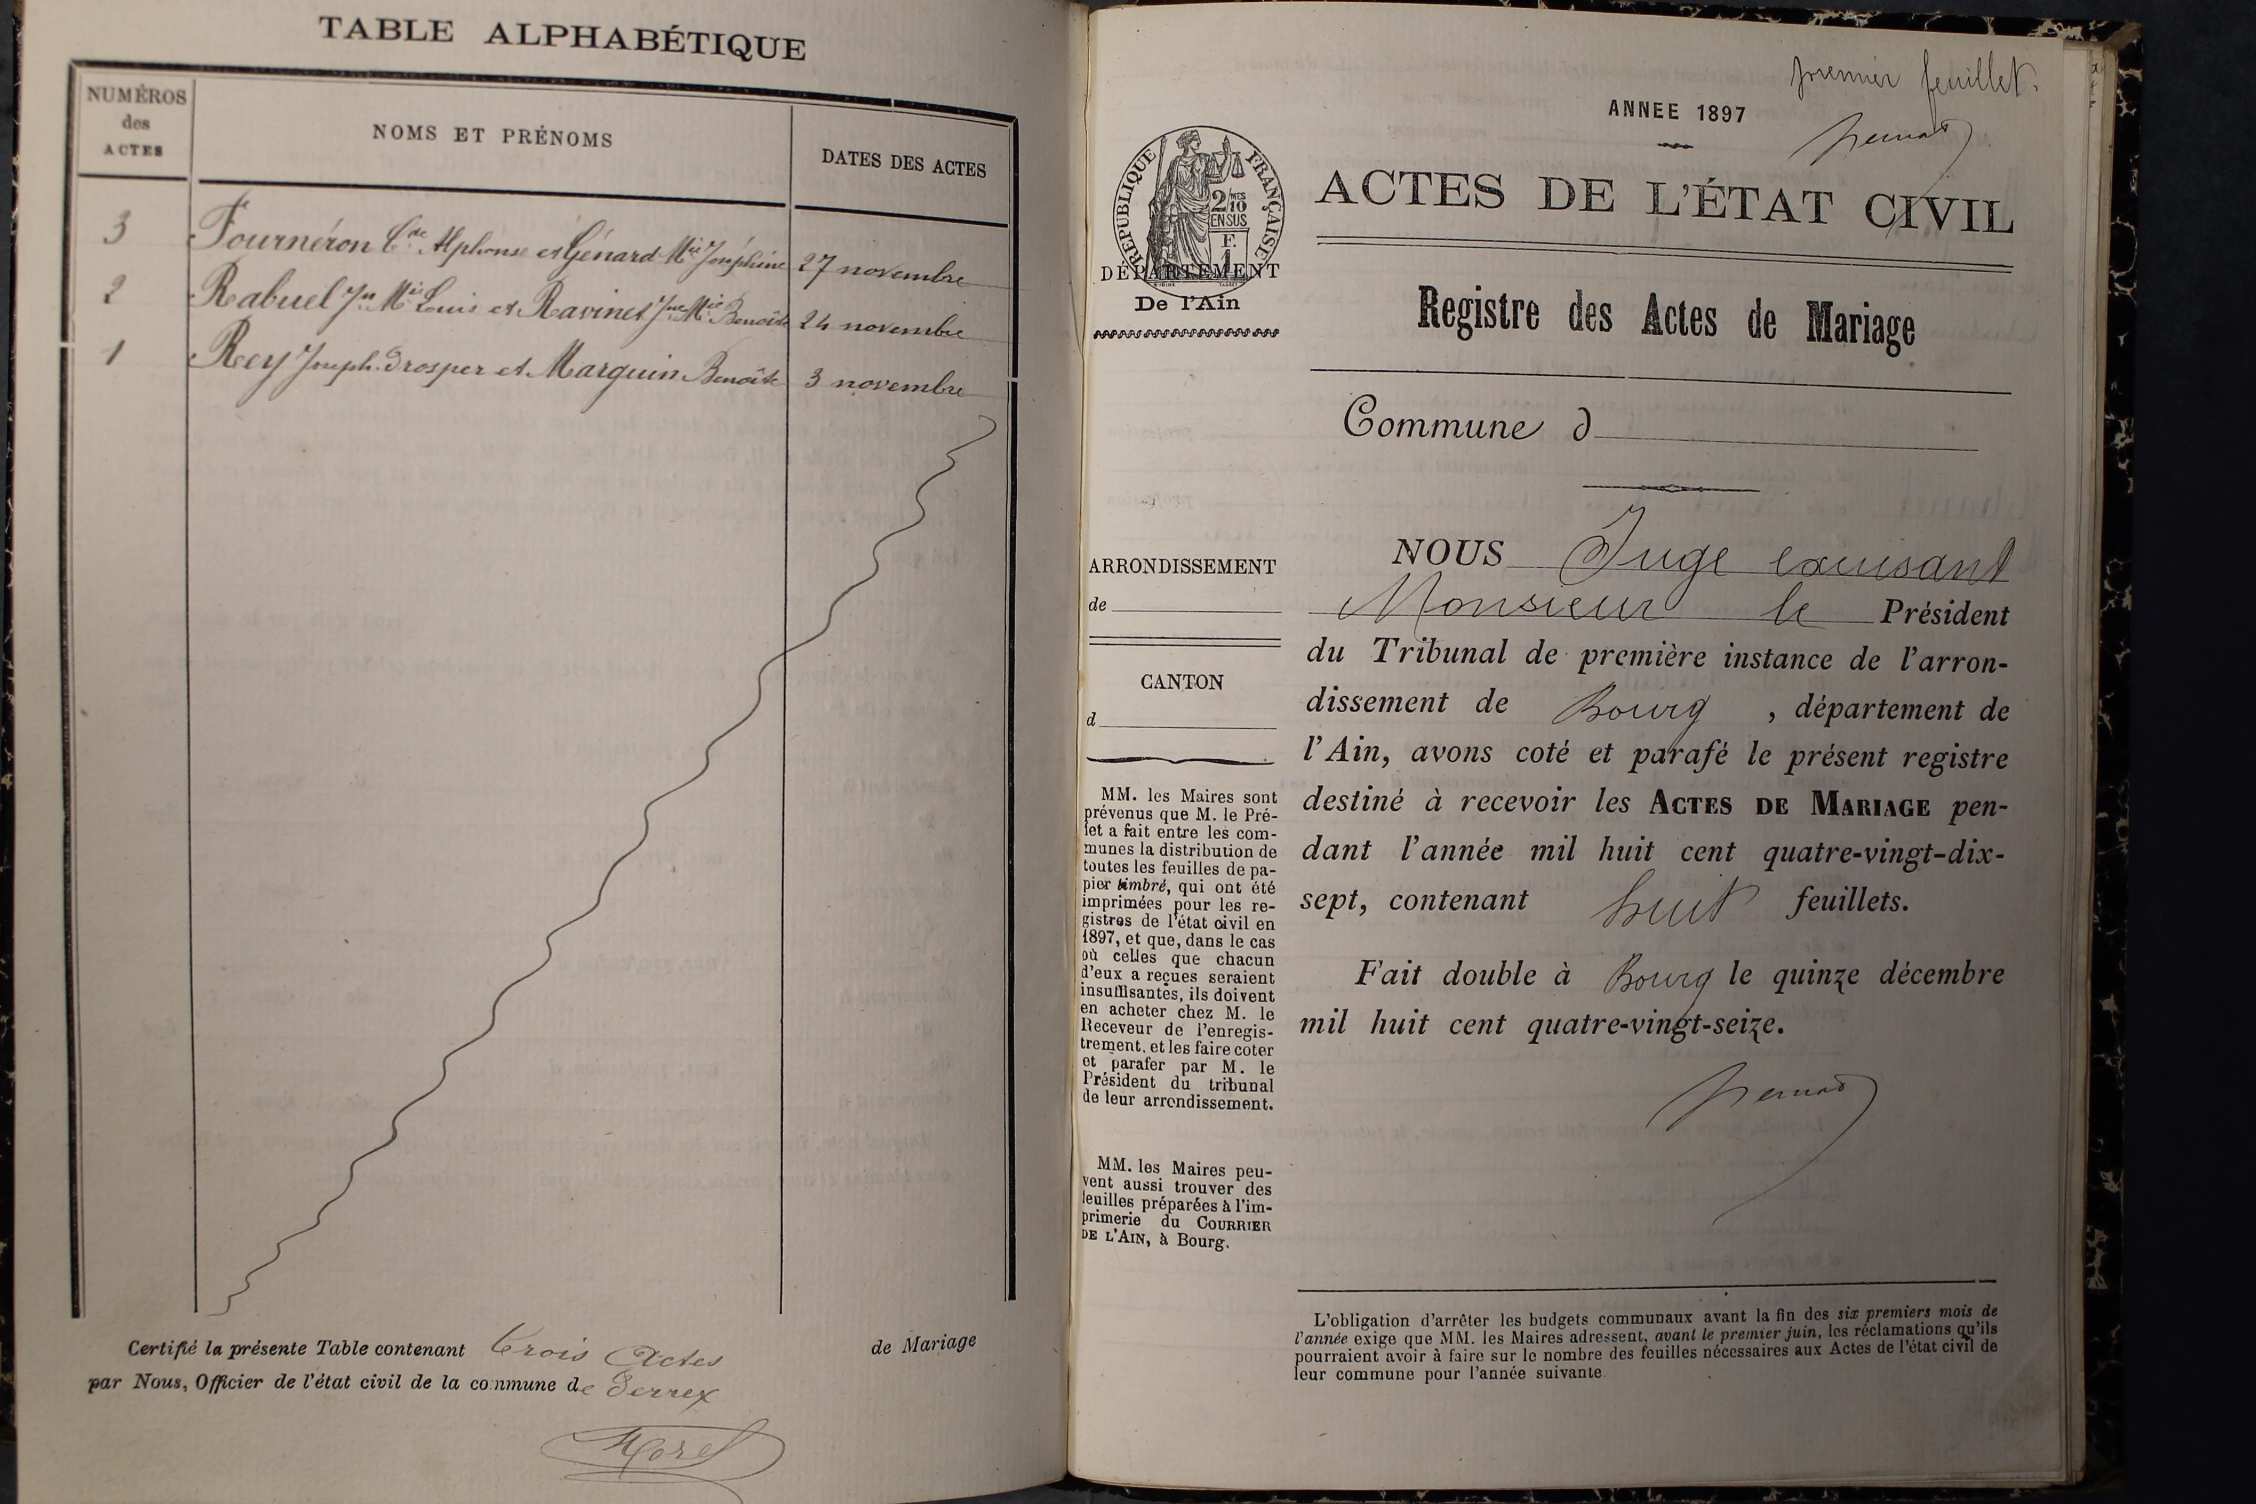 TABLE ALPHABÉTIQUE
NUMÉROS
des
ACTES
NOMS ET PRÉNOMS
DATES DES ACTES
3 Fournéron Cde Alphonse et Génard Mie Joséphine 27 novembre
2 Rabuel Jn Mie Louis et Ravinet Jne Mie Benoîte 24 novembre
1 Rey Joseph Prosper et Marguin Benoîte 3 novembre
Certifié la présente Table contenant trois Actes de Mariage
par Nous, Officier de l'état civil de la commune de Perrex
Morel
premier feuillet.
ANNEE 1897
RÉPUBLIQUE FRANÇAISE
2/10MES
EN SUS
F.
1
DÉPARTEMENT
De l'Ain
ARRONDISSEMENT
de
CANTON
d
MM. les Maires sont
prévenus que M. le Pré-
fet a fait entre les com-
munes la distribution de
toutes les feuilles de pa-
pier timbré, qui ont été
imprimées pour les re-
gistres de l'état civil en
1897, et que, dans le cas
où celles que chacun
d'eux a reçues seraient
insuffisantes, ils doivent
en acheter chez M. le
Receveur de l'enregis-
trement, et les faire coter
et parafer par M. le
Président du tribunal
de leur arrondissement.
MM. les Maires peu-
vent aussi trouver des
feuilles préparées à l'im-
primerie du COURRIER
DE L'AIN, à Bourg.
ACTES DE L'ÉTAT CIVIL
Registre des Actes de Mariage
Commune d
NOUS Juge excusant
Monsieur le Président
du Tribunal de première instance de l'arron-
dissement de Bourg , département de
l'Ain, avons coté et parafé le présent registre
destiné à recevoir les ACTES DE MARIAGE pen-
dant l'année mil huit cent quatre-vingt-dix-
sept, contenant huit feuillets.
Fait double à Bourg le quinze décembre
mil huit cent quatre-vingt-seize.
L'obligation d'arrêter les budgets communaux avant la fin des six premiers mois de
l'année exige que MM. les Maires adressent, avant le premier juin, les réclamations qu'ils
pourraient avoir à faire sur le nombre des feuilles nécessaires aux Actes de l'état civil de
leur commune pour l'année suivante.